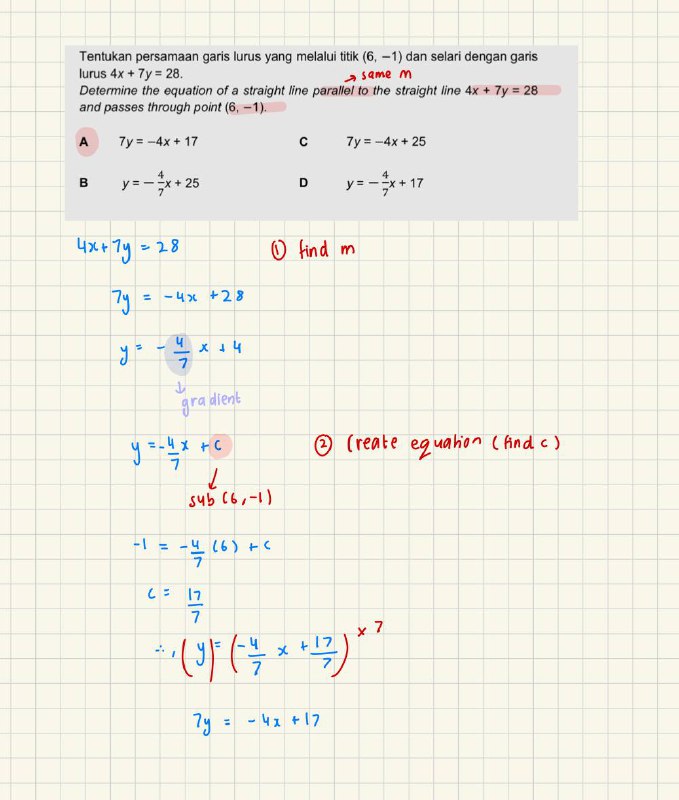 Tentukan persamaan garis lurus yang melalui titik (6, −1) dan selari dengan garis
lurus 4x + 7y = 28.
→ same m
Determine the equation of a straight line parallel to the straight line 4x + 7y = 28
and passes through point (6, −1).
A 7y = −4x + 17 C 7y = −4x + 25
B y = −4/7x + 25 D y = −4/7x + 17
4x + 7y = 28 ① find m
7y = -4x + 28
y = -4/7 x + 4
↓
gradient
y = -4/7 x + c ② Create equation (find c)
↓
sub (6, -1)
-1 = -4/7 (6) + c
c = 17/7
∴, (y) = (-4/7 x + 17/7) × 7
7y = -4x + 17